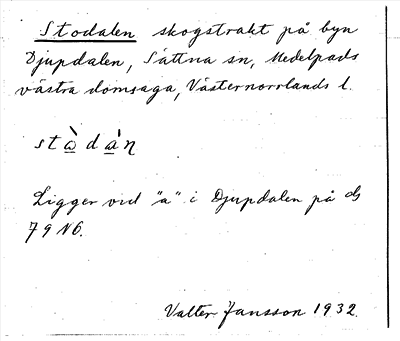 Stodalen skogstrakt på byn
Djupdalen, Sättna sn, Medelpads
västra domsaga, Västernorrlands l.
stàdàn
Ligger vid "a" i Djupdalen på
79 N6.
Valter Jansson 1932.